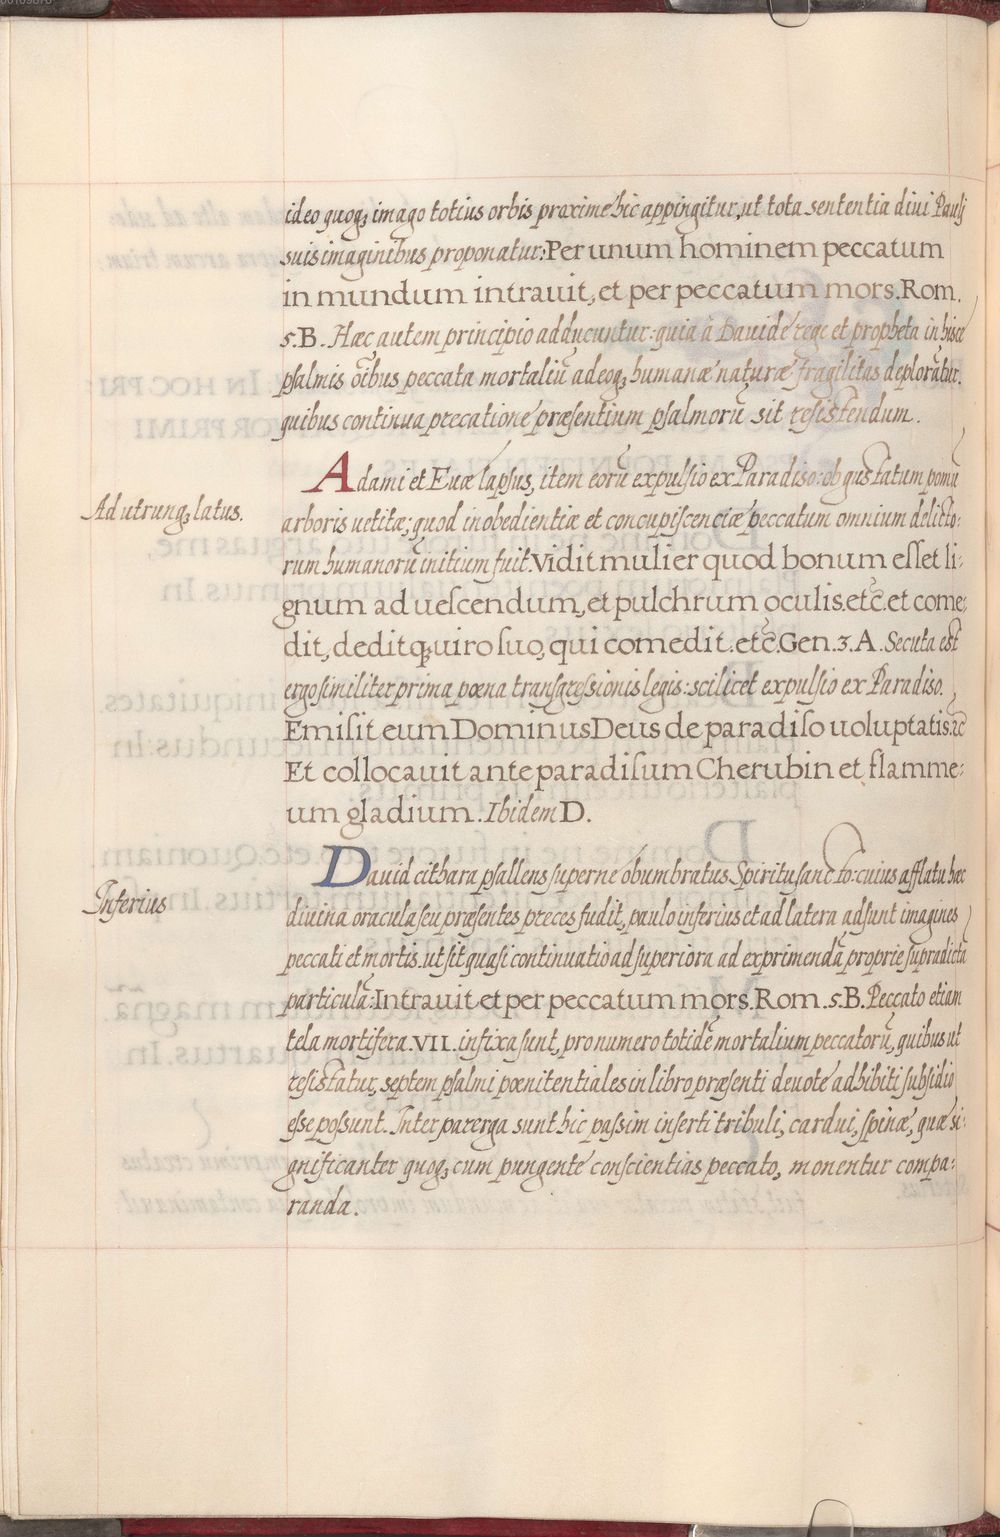 ideo quoq; imago totius orbis proxime hic appingitur, ut tota sententia diui Pauli
suis imaginibus proponatur: Per unum hominem peccatum
in mundum intrauit, et per peccatum mors. Rom.
5. B. Hæc autem principio adducuntur: quia à Dauide rege et propheta in hisce
psalmis oı̃bus peccata mortaliũ adeoq; humanæ naturæ fragilitas deplorãtur.
quibus continua precatione præsentium psalmorũ sit resistendum.
Adami et Euæ lapsus, item eorũ expulsio ex Paradiso: ob gustatum pomũ
Ad utrunq; latus.
arboris uetitæ; quod inobedientiæ et concupiscenciæ peccatum omnium delicto:
rum humanorũ initium fuit. Vidit mulier quod bonum esset li:
gnum ad uescendum, et pulchrum oculis. etc̃. et come:
dit, deditq; uiro suo, qui comedit. etc̃. Gen. 3. A. Secuta est
ergo similiter prima pœna transgressionis legis: scilicet expulsio ex Paradiso.
Emisit eum Dominus Deus de paradiso uoluptatis. ꝛc̃
Et collocauit ante paradisum Cherubin et flamme:
um gladium. Ibidem D.
Dauid cithara psallens superne obumbratus Spiritu sancto: cuius afflatu hæc
Inferius
diuina oracula seu præsentes preces fudit, paulo inferius et ad latera adsunt imagines
peccati et mortis. ut sit quasi continuatio ad superiora ad exprimendã proprie supradictã
particulã: Intrauit et per peccatum mors. Rom. 5. B. Peccato etiam
tela mortifera .VII. infixa sunt, pro numero totidẽ mortalium peccatorũ, quibus ut
resistatur, septem psalmi pœnitentiales in libro præsenti deuote adhibiti subsidio
esse possunt. Inter parerga sunt hic passim inserti tribuli, cardui, spinæ, quæ si:
gnificanter quoq; cum pungente conscientias peccato, monentur compa:
randa.